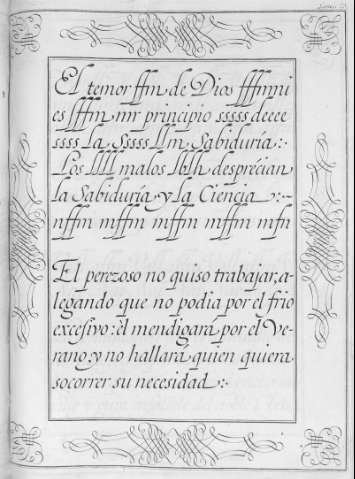 El temor ffm de Dios fffmni
es ffffm mr principio sssss deeee
ssss La Sssss llm Sabiduría:·
Los llll malos lblh desprécian
la Sabiduría y la Ciencia :~
nffm mffm mffm mffm mfn
El perezoso no quiso trabajar, a-
legando que no podia por el frio
excesivo: èl mendigará por el Ve-
rano; y no hallará quien quiera
socorrer su necesidad :·